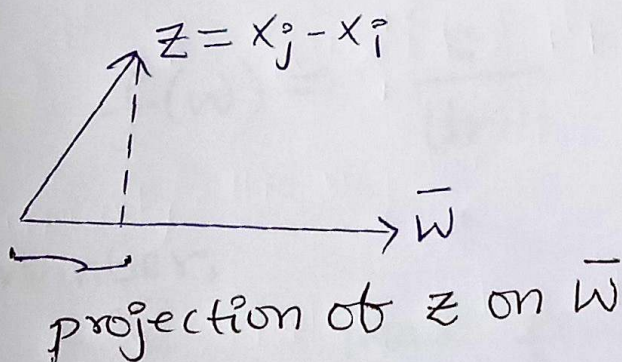 z = xj - xi
w̄
projection of z on w̄